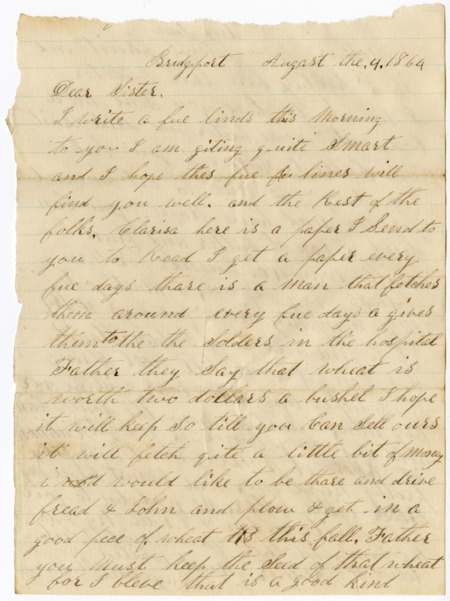 Bridgport August the. 4. 1864
Dear Sister.
I write a fue linds this Morning
to you I am giting quite Smart
and I hope thes fue lines will
find you well. and the Rest of the
folks. Clarisa here is a paper I Send to
you to Read I get a paper every
fue days thare is a man that fetches
them around every fue days a gives
them to the the Solders in the hospital
Father they Say that wheat is
worth two dollars a bushel I hope
it will keep So till you Can Sell ours
it will fetch qite a little bit of Money
i would like to be thare and drive
fread & John and plow & get in a
good pece of wheat this fall. Father
you Must keep the Seed of that wheat
for I bleve that is a good kind